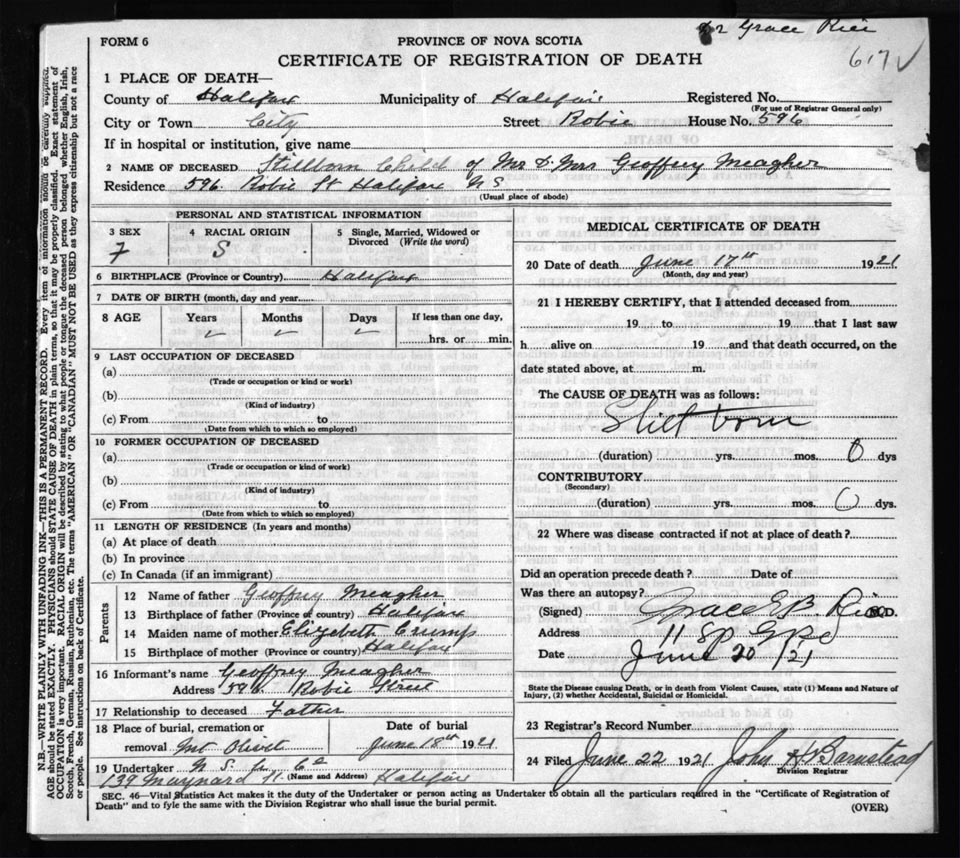 Dr Grace Rice
617 ✓
FORM 6
PROVINCE OF NOVA SCOTIA
CERTIFICATE OF REGISTRATION OF DEATH
1 PLACE OF DEATH—
County of Halifax Municipality of Halifax Registered No.
(For use of Registrar General only)
City or Town City Street Robie House No. 596
If in hospital or institution, give name
2 NAME OF DECEASED Stillborn Child of Mr & Mrs Geoffrey Meagher
Residence 596 Robie St Halifax N S
(Usual place of abode)
PERSONAL AND STATISTICAL INFORMATION
3 SEX 4 RACIAL ORIGIN 5 Single, Married, Widowed or Divorced (Write the word)
F S
6 BIRTHPLACE (Province or Country) Halifax
7 DATE OF BIRTH (month, day and year)
8 AGE Years Months Days If less than one day,
✓ ✓ ✓ hrs. or min.
9 LAST OCCUPATION OF DECEASED
(a)
(Trade or occupation or kind or work)
(b)
(Kind of industry)
(c) From to
(Date from which to which so employed)
10 FORMER OCCUPATION OF DECEASED
(a)
(Trade or occupation or kind of work)
(b)
(Kind of industry)
(c) From to
(Date from which to which so employed)
11 LENGTH OF RESIDENCE (In years and months)
(a) At place of death
(b) In province
(c) In Canada (if an immigrant)
Parents
12 Name of father Geoffrey Meagher
13 Birthplace of father (Province or country) Halifax
14 Maiden name of mother Elizabeth Crump
15 Birthplace of mother (Province or country) Halifax
16 Informant's name Geoffrey Meagher
Address 596 Robie Street
17 Relationship to deceased Father
18 Place of burial, cremation or Date of burial
removal Mt Olivet June 18th 1921
19 Undertaker N S U Co
139 Maynard St (Name and Address) Halifax
MEDICAL CERTIFICATE OF DEATH
20 Date of death June 17th 1921
(Month, day and year)
21 I HEREBY CERTIFY, that I attended deceased from
19 to 19 that I last saw
h alive on 19 and that death occurred, on the
date stated above, at m.
The CAUSE OF DEATH was as follows:
Still born
(duration) yrs. mos. 0 dys
CONTRIBUTORY
(Secondary)
(duration) yrs. mos. 0 dys.
22 Where was disease contracted if not at place of death?
Did an operation precede death? Date of
Was there an autopsy?
(Signed) Grace E B Rice M.D.
Address 11 Sp G Rd
Date June 20 /21
State the Disease causing Death, or in death from Violent Causes, state (1) Means and Nature of
Injury, (2) whether Accidental, Suicidal or Homicidal.
23 Registrar's Record Number
24 Filed June 22 1921 John H Barnstead
Division Registrar
SEC. 46—Vital Statistics Act makes it the duty of the Undertaker or person acting as Undertaker to obtain all the particulars required in the "Certificate of Registration of
Death" and to fyle the same with the Division Registrar who shall issue the burial permit.
(OVER)
N.B.—WRITE PLAINLY WITH UNFADING INK—THIS IS A PERMANENT RECORD. Every item of information should be carefully supplied.
AGE should be stated EXACTLY. PHYSICIANS should STATE CAUSE OF DEATH in plain terms, so that it may be properly classified. Exact statement of
OCCUPATION is very important. RACIAL ORIGIN will be described by stating to what people or tongue the deceased person belonged whether English, Irish,
Scotch, French, German, Russian, Ruthenian, etc. The terms "AMERICAN" OR "CANADIAN" MUST NOT BE USED as they express citizenship but not a race
or people. See instructions on back of Certificate.